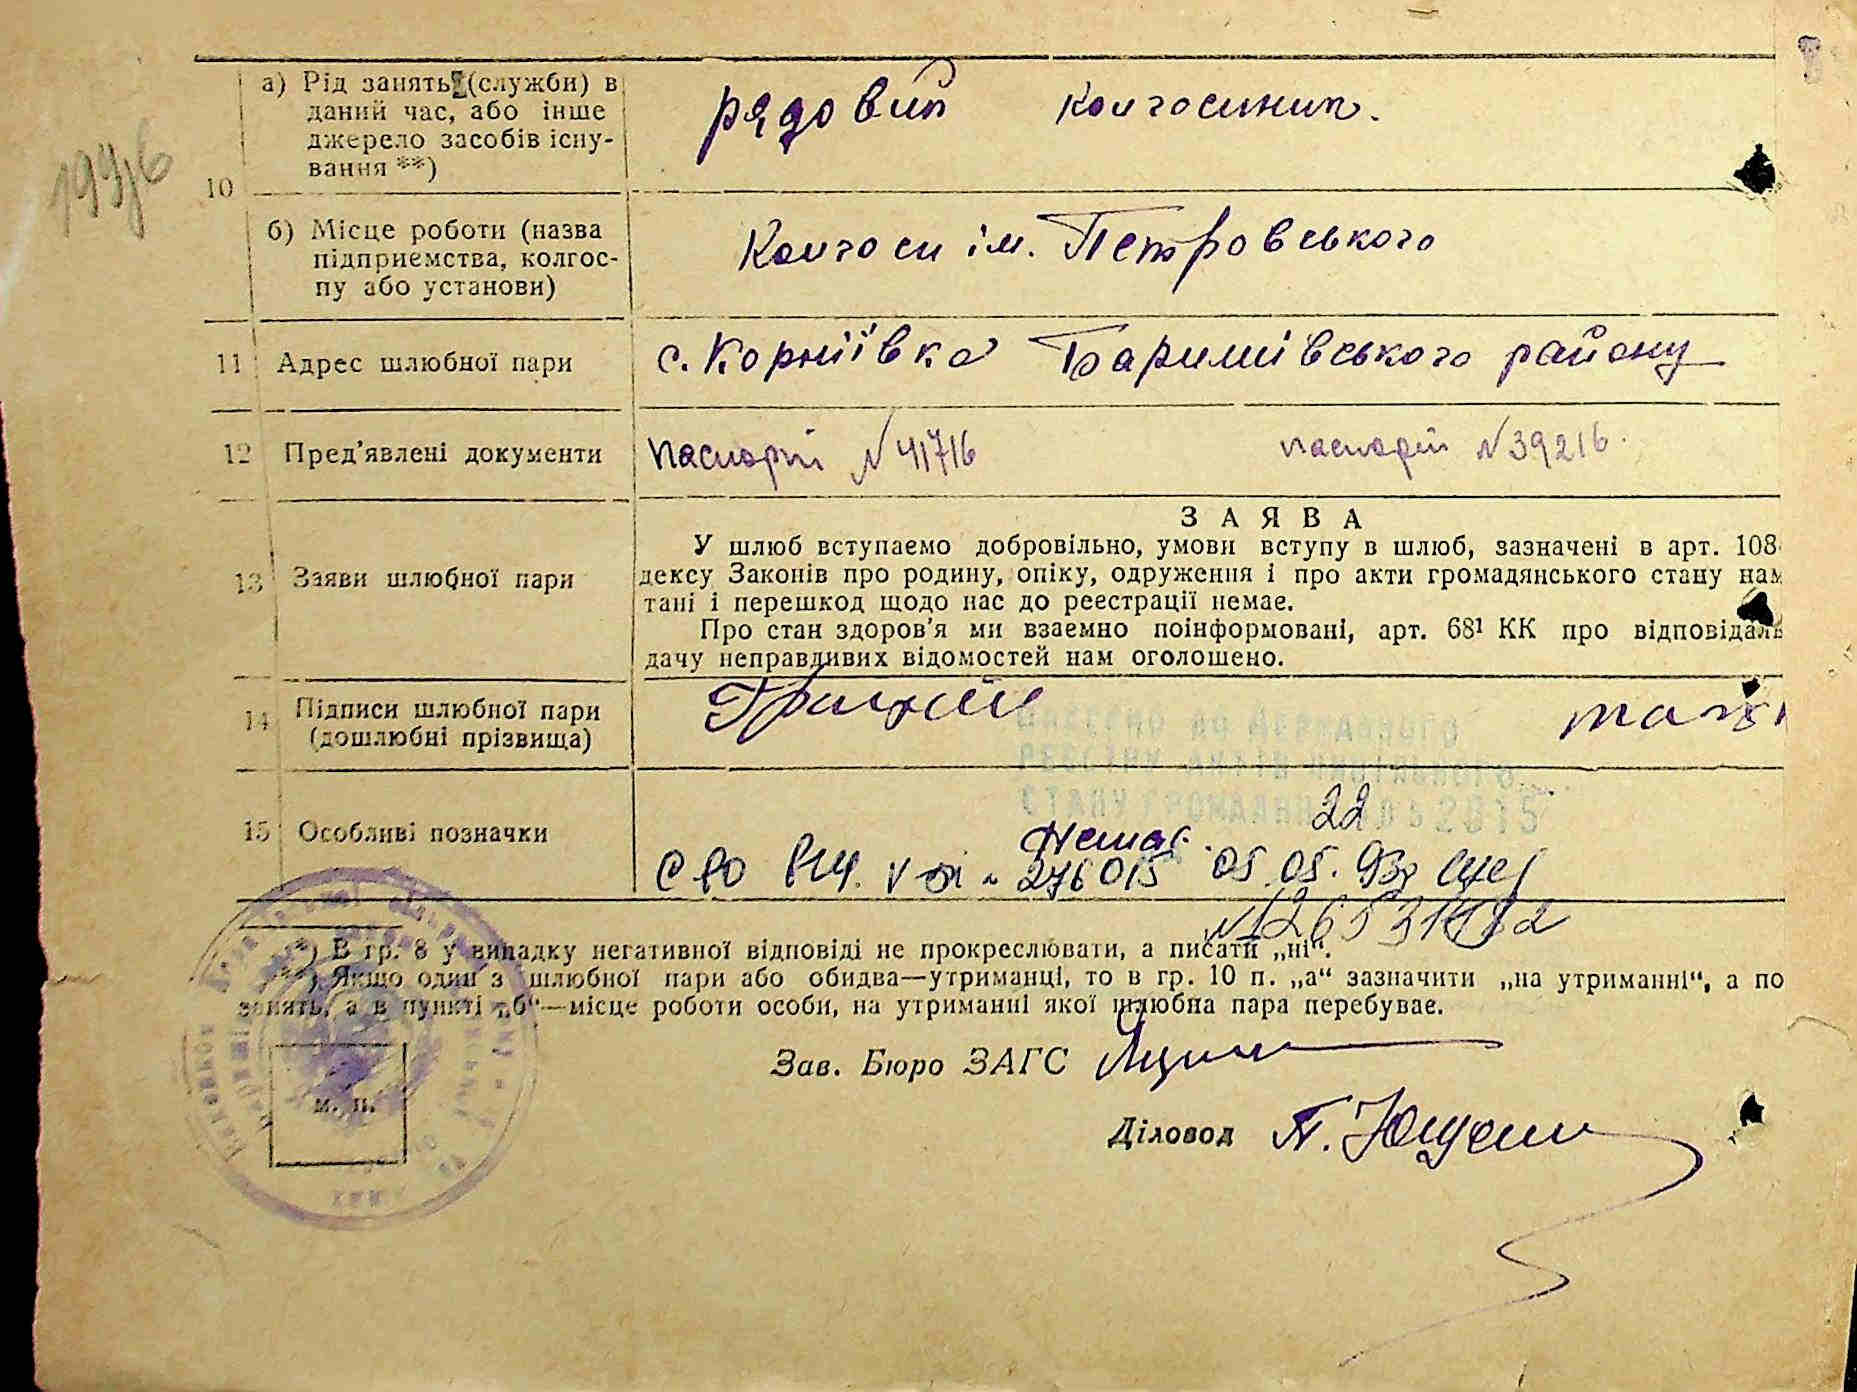 а) Рід занять (служби) в
даний час, або інше
джерело засобів існу-
вання **)
рядовий колгоспник.
10
б) Місце роботи (назва
підприємства, колгос-
пу або установи)
Колгосп ім. Петровського
11 Адрес шлюбної пари
с. Корніївка Баришівського району
12 Пред'явлені документи
паспорт №41716 паспорт №39216.
13 Заяви шлюбної пари
ЗАЯВА
У шлюб вступаємо добровільно, умови вступу в шлюб, зазначені в арт. 108
дексу Законів про родину, опіку, одруження і про акти громадянського стану нам
тані і перешкод щодо нас до реестрації немає.
Про стан здоров'я ми взаємно поінформовані, арт. 68¹ КК про відповідаль
дачу неправдивих відомостей нам оголошено.
14 Підписи шлюбної пари
(дошлюбні прізвища)
Внесено до Державного
реєстру актів цивільного
стану громадян 2015
22
15 Особливі позначки
Немає.
276015 05.05.93р
*) В гр. 8 у випадку негативної відповіді не прокреслювати, а писати „ні“.
**) Якщо один з шлюбної пари або обидва—утриманці, то в гр. 10 п. „а“ зазначити „на утриманні“, а по
занять, а в пункті „б“—місце роботи особи, на утриманні якої шлюбна пара перебуває.
Зав. Бюро ЗАГС
м. п.
Діловод